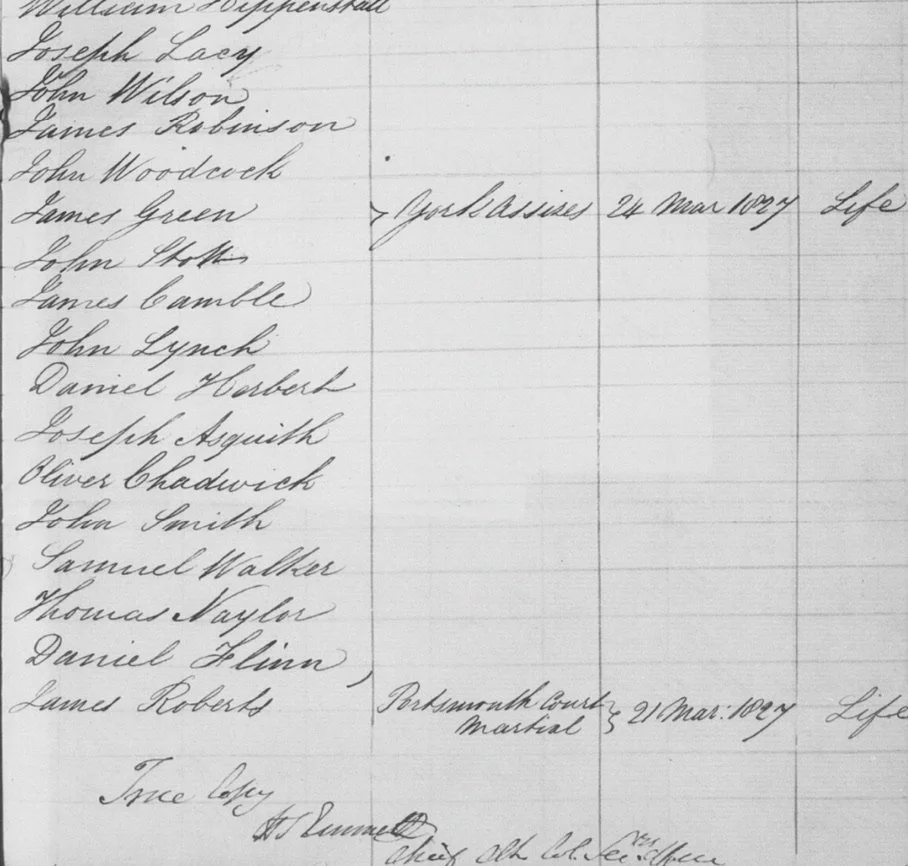 William Hippenstall
Joseph Lacy
John Wilson
James Robinson
John Woodcock
James Green } York Assizes 24 Mar 1827 Life
John Stott
James Camble
John Lynch
Daniel Herbert
Joseph Asquith
Oliver Chadwick
John Smith
Samuel Walker
Thomas Naylor
Daniel Flinn
James Roberts Portsmouth Court
Martial } 21 Mar: 1827 Life
True Copy
H S Emmett
Chief Clk Col. Sec.rs Office